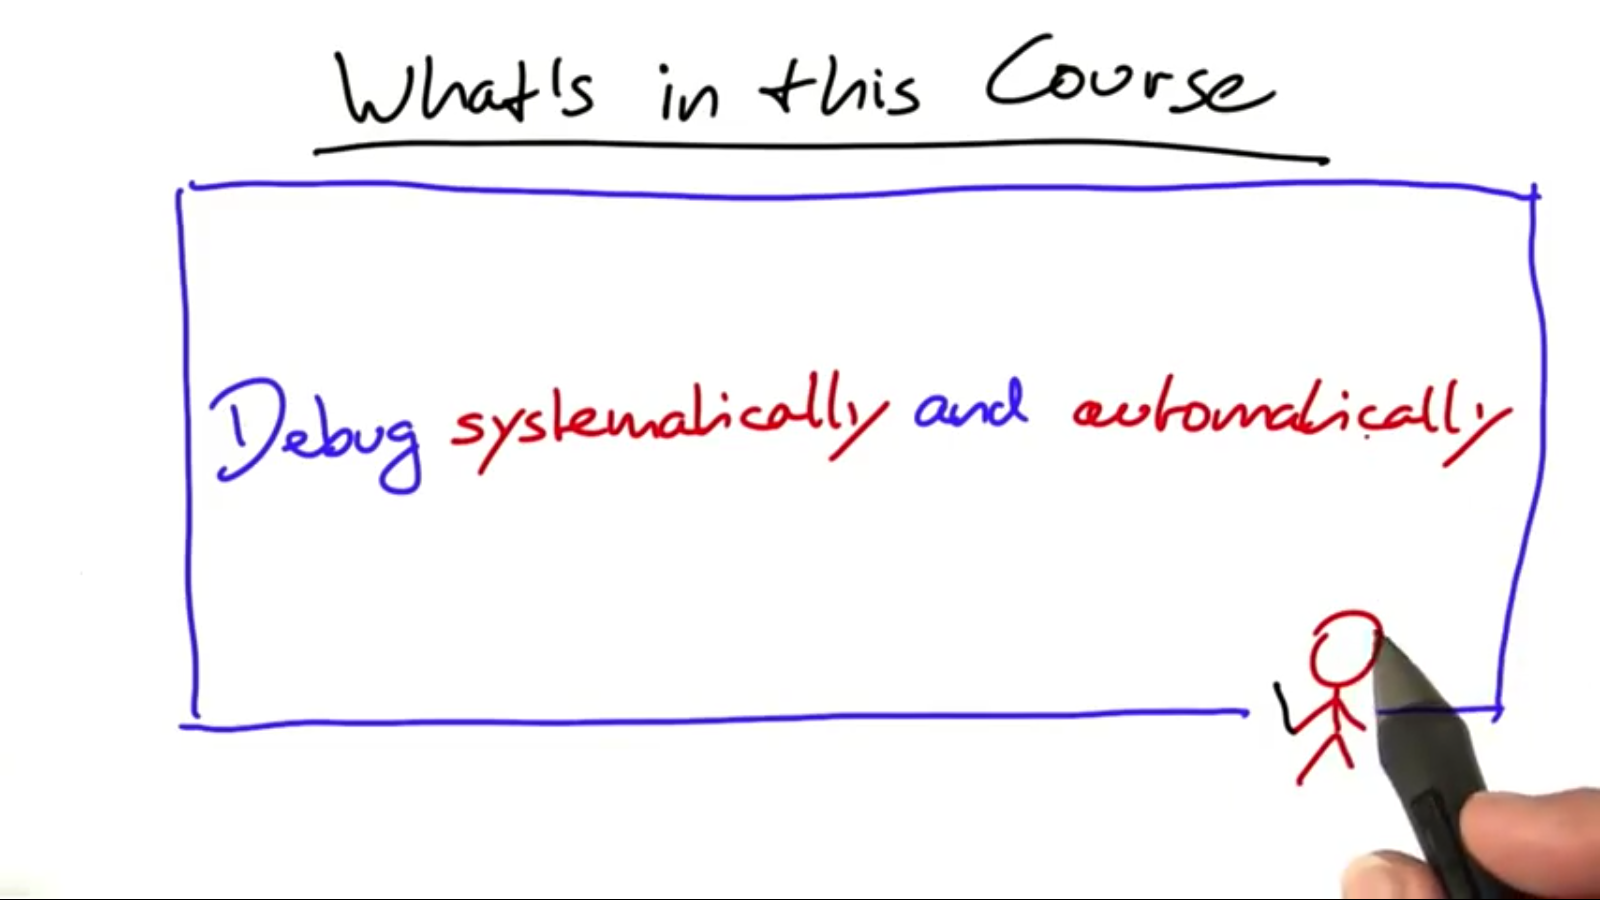 What's in this Course
Debug systematically and automatically